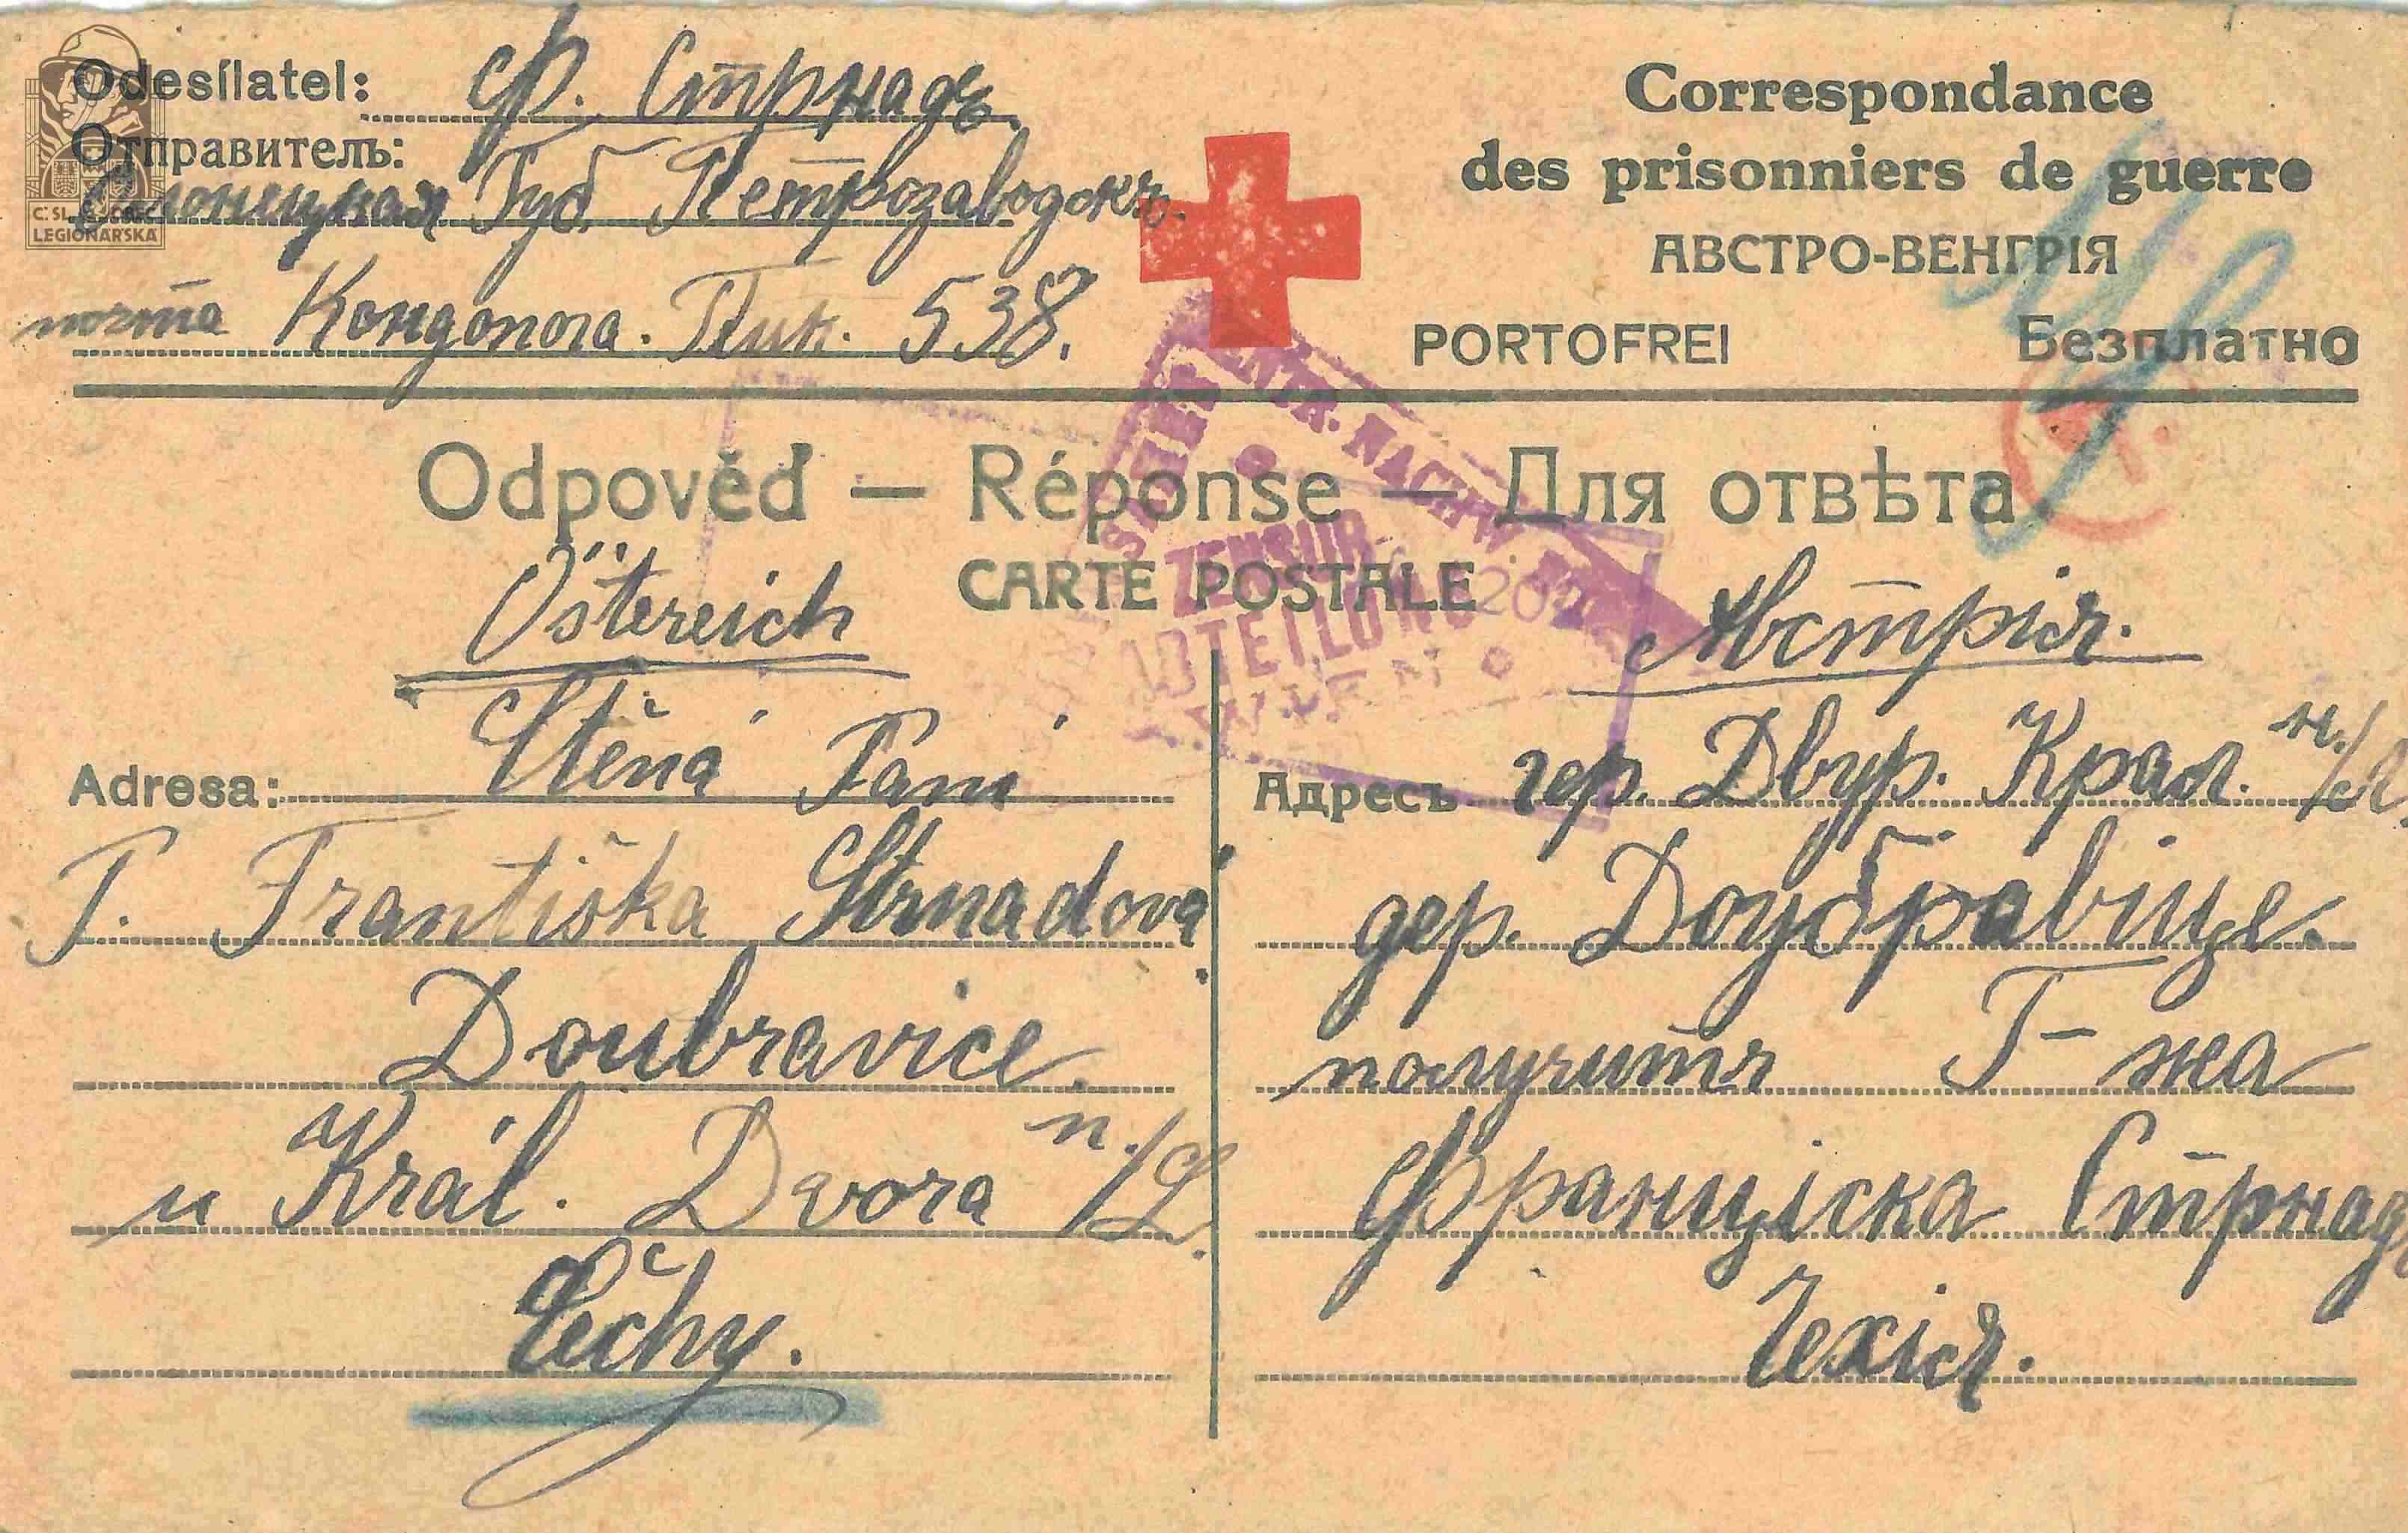 Odesílatel: Ф. Стрнадъ.
Отправитель:
Олонецкая Губ. Петрозаводскъ.
почта Кондопога. Пик. 538.
Correspondance
des prisonniers de guerre
АВСТРО-ВЕНГРІЯ
PORTOFREI Безплатно
Odpověď — Réponse — Для отвѣта
CARTE POSTALE
ZENSUR-
ABTEILUNG
WIEN
Östereich
Ctěná Paní
Adresa:
P. Františka Strnadová
Doubravice.
u Král. Dvora n./L.
Čechy.
Австрія.
Адресъ гор. Двур. Крал. н./Л.
дер. Доубравице.
получитъ Г-жа
Франціска Стрнад
Чехія.
C.SL. OBEC
LEGIONÁŘSKÁ